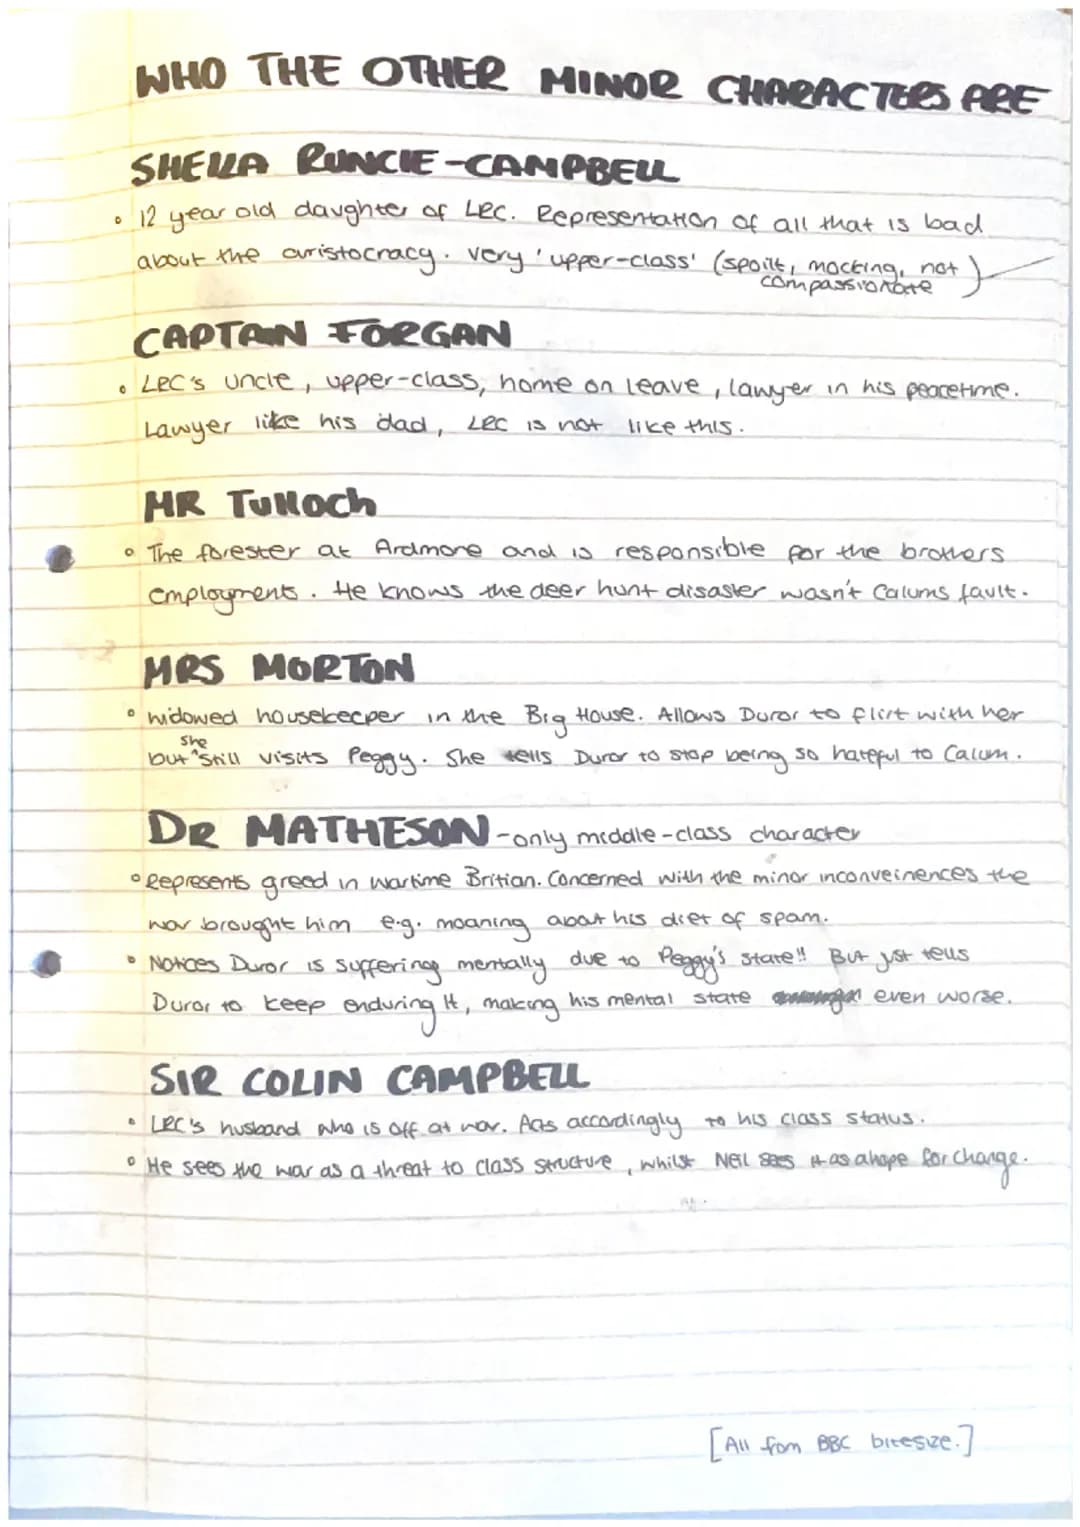 WHO THE OTHER MINOR CHARACTERS ARE
SHEILA RUNCIE-CAMPBELL
• 12 year old daughter of LRC. Representation of all that is bad
about the aristocracy. Very 'upper-class' (spoilt, mocking, not
compassionate)
CAPTAIN FORGAN
• LRC's uncle, upper-class, home on leave, lawyer in his peacetime.
Lawyer like his dad, LRC is not like this.
MR Tulloch
• The forester at Ardmore and is responsible for the brothers
employments. He knows the deer hunt disaster wasn't Calums fault.
MRS MORTON
• widowed housekeeper in the Big House. Allows Duror to flirt with her
but ^she still visits Peggy. She tells Duror to stop being so hateful to Calum.
DR MATHESON - only middle-class character
• Represents greed in wartime Britian. Concerned with the minor inconveinences the
war brought him e.g. moaning about his diet of spam.
• Notices Duror is suffering mentally due to Peggy's state!! But just tells
Duror to keep enduring it, making his mental state even worse.
SIR COLIN CAMPBELL
• LRC's husband who is off at war. Acts accordingly to his class status.
• He sees the war as a threat to class structure, whilst NEIL sees it as a hope for change.
[All fom BBC bitesize.]